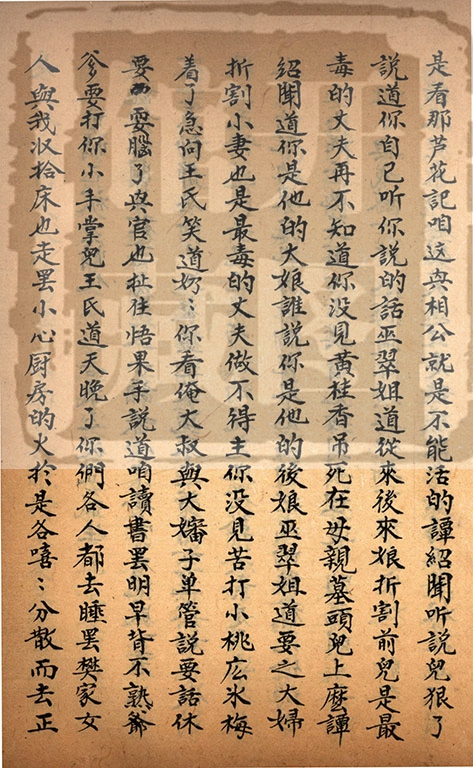 是看那芦花記咱这兴相公就是不能活的譚紹聞听說兒狠了
說道你自已听你說的話巫翠姐道從來後來娘折割前兒是最
毒的丈夫再不知道你没見黄桂香吊死在母親墓頭兒上麽譚
紹聞道你是他的大娘誰說你是他的後娘巫翠姐道要之大婦
折割小妻也是最毒的丈夫做不得主你没見苦打小桃庅氷梅
着了急向王氏笑道奶〻你看俺大叔與大嬸子单管説耍話休
要耍惱了兴官也扯住悟果手説道咱讀書罷明早背不熟爺
爹要打你小手掌兒王氏道天晚了你們各人都去睡罷樊家女
人與我収拾床也走罷小心厨房的火於是各嘻〻分散而去正